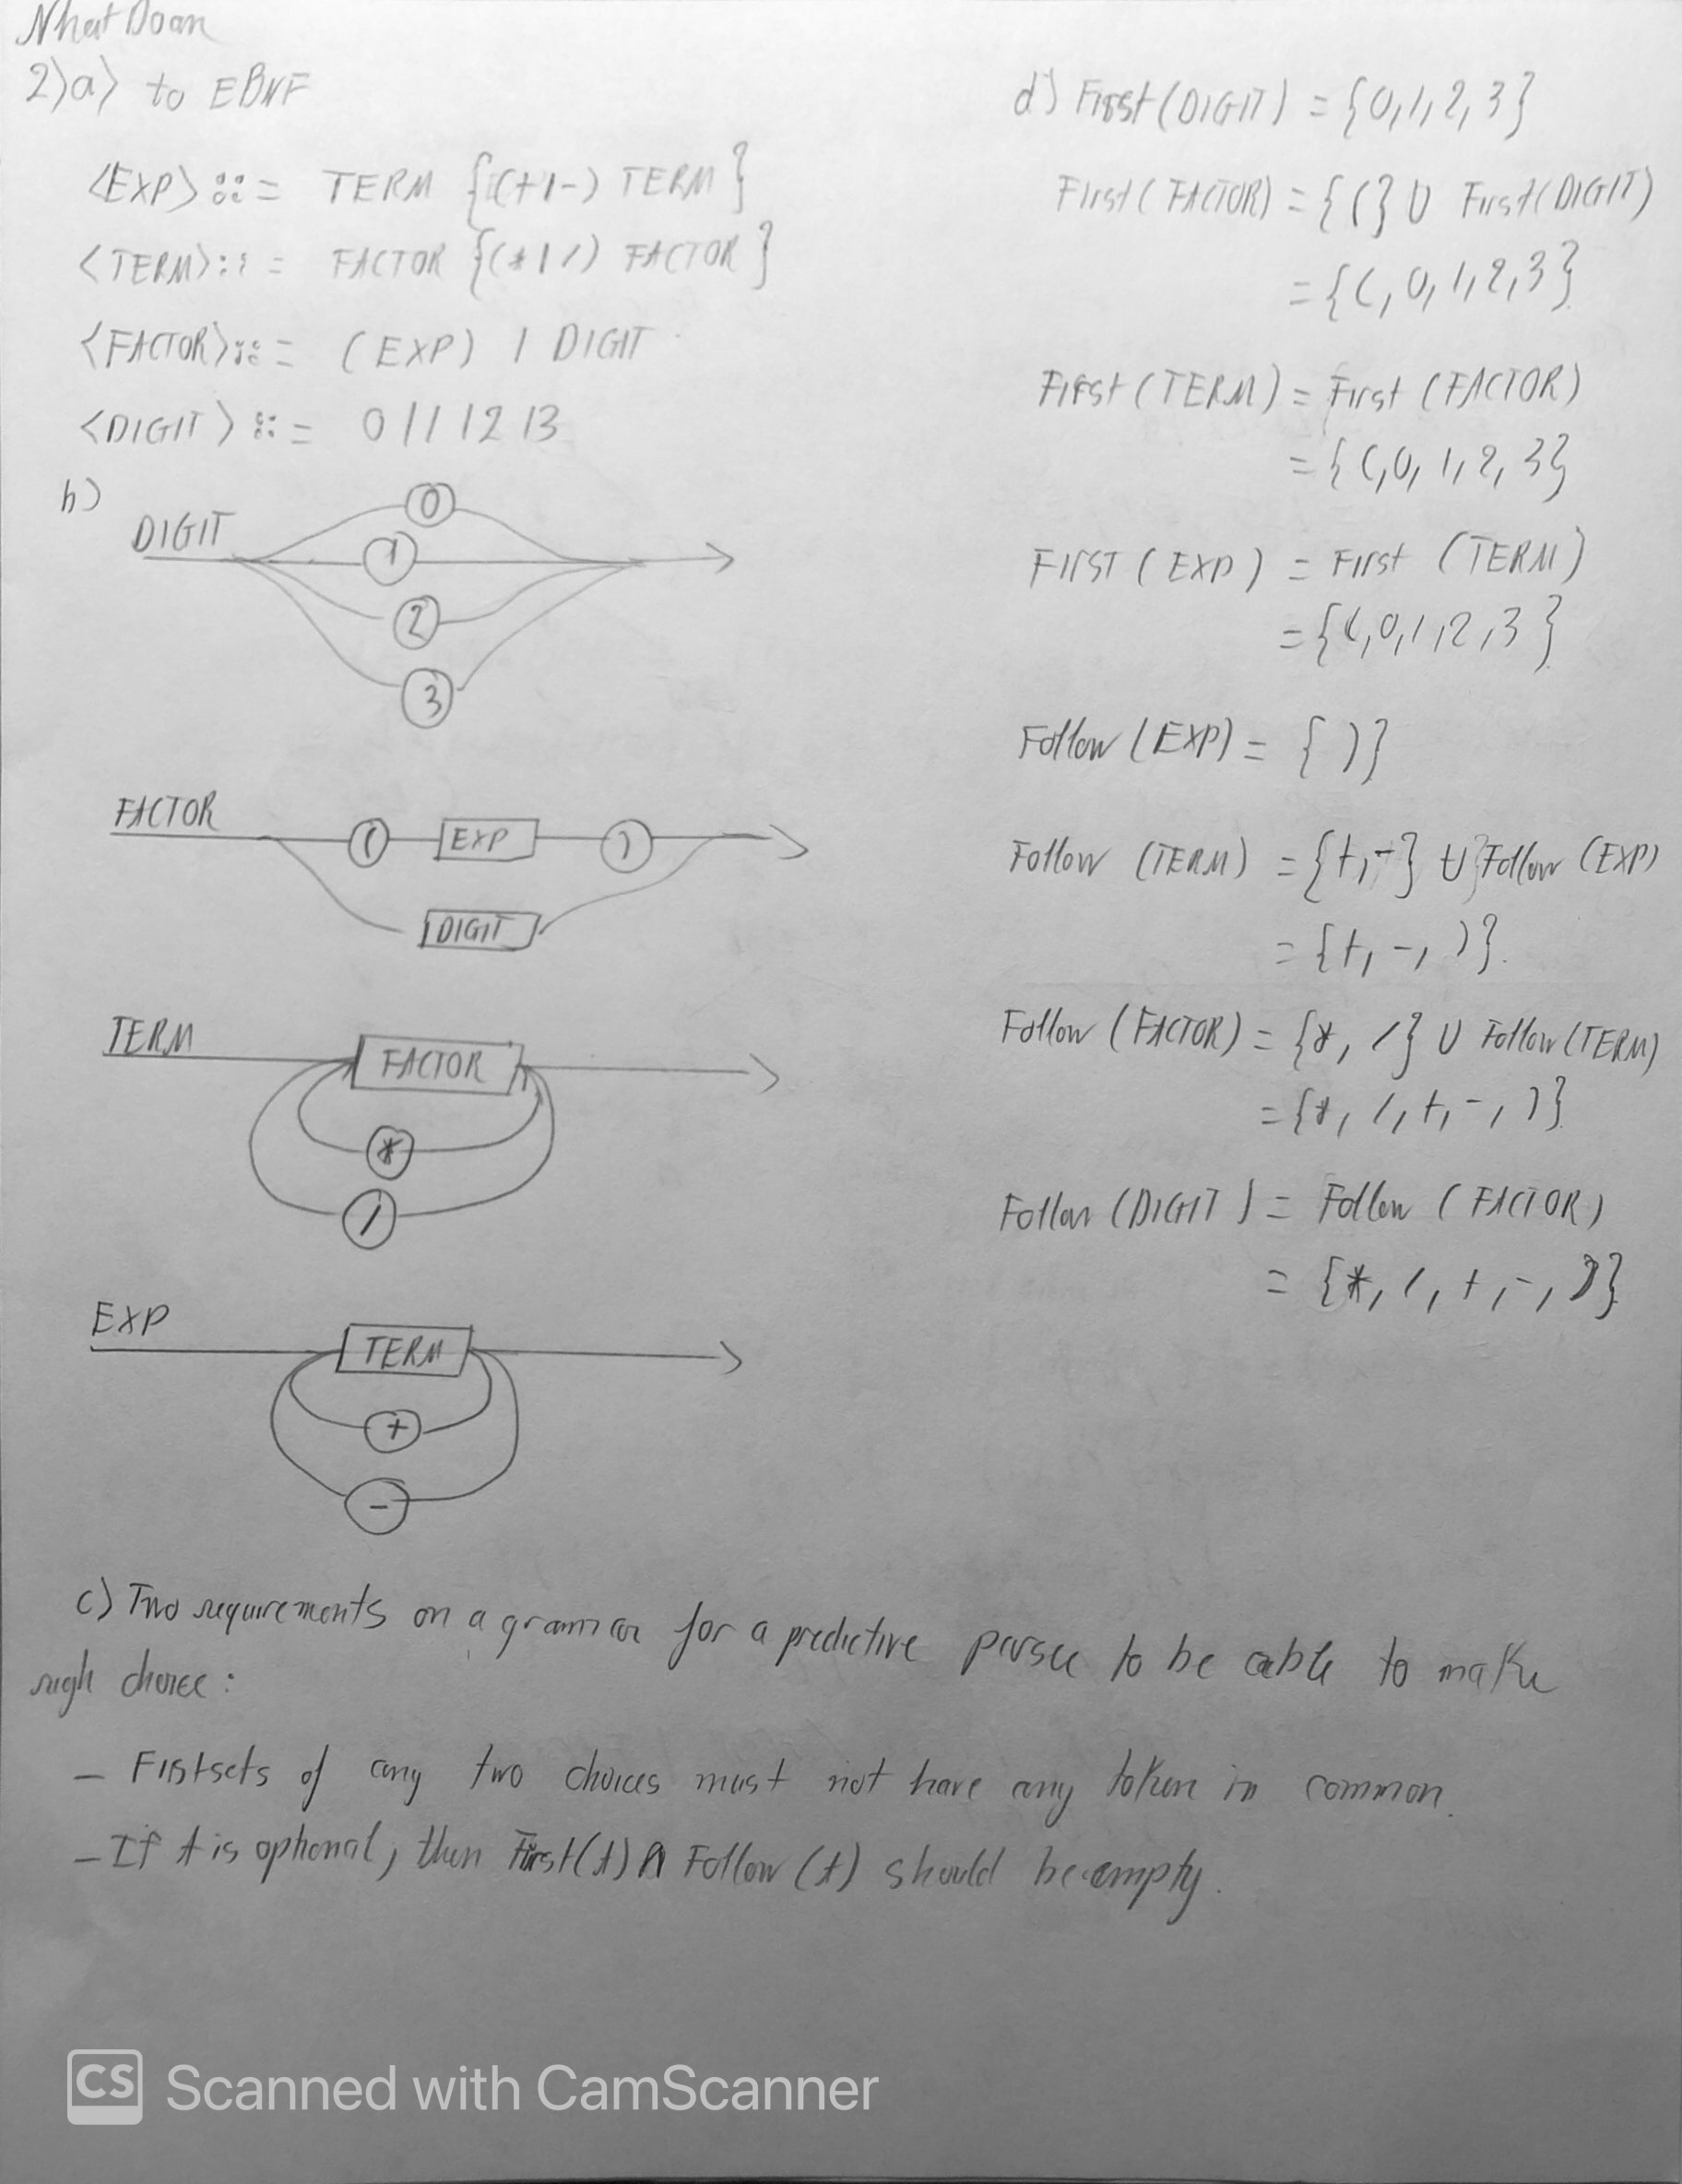 Nhat Doan
2) a) to EBNF
<EXP> ::= TERM {(+|-) TERM}
<TERM> ::= FACTOR {(*|/) FACTOR}
<FACTOR> ::= (EXP) | DIGIT
<DIGIT> ::= 0 | 1 | 2 | 3
b)
DIGIT
0
1
2
3
FACTOR
( EXP )
DIGIT
TERM
FACTOR
*
/
EXP
TERM
+
-
c) Two requirements on a grammar for a predictive parser to be able to make
righ choice:
- Firstsets of any two choices must not have any token in common.
- If t is optional, then First(t) ∩ Follow (t) should be empty.
d) First (DIGIT) = {0,1,2,3}
First (FACTOR) = {(} U First (DIGIT)
= {(, 0, 1, 2, 3}
First (TERM) = First (FACTOR)
= {(, 0, 1, 2, 3}
First (EXP) = First (TERM)
= {(, 0, 1, 2, 3}
Follow (EXP) = { ) }
Follow (TERM) = {+, -} U Follow (EXP)
= {+, -, )}.
Follow (FACTOR) = {*, /} U Follow (TERM)
= {*, /, +, -, )}
Follow (DIGIT) = Follow (FACTOR)
= {*, /, +, -, )}
CS Scanned with CamScanner